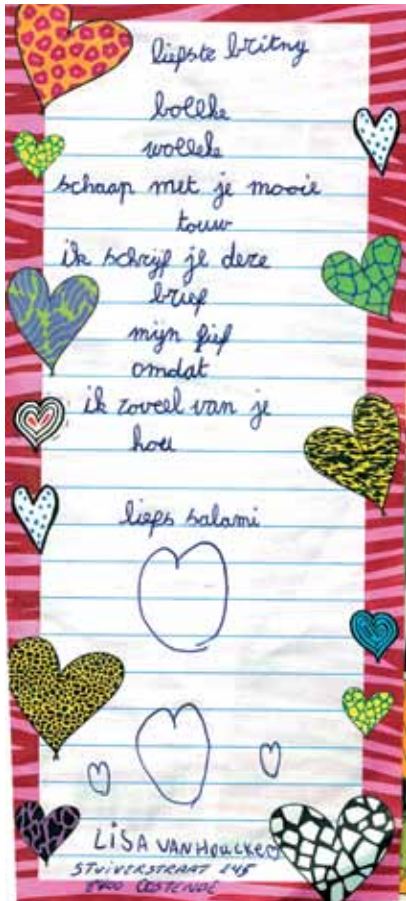 liefste britny
bolleke
wolleke
schaap met je mooie
touw
ik schrijf je deze
brief
mijn fief
omdat
ik zoveel van je
hou
liefs salami
LISA VANHOUCKE
STUIVERSTRAAT 245
8400 OOSTENDE